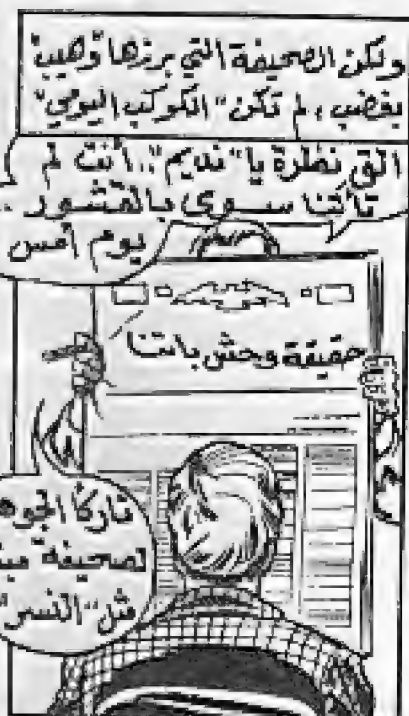 ولكن الصحيفة التي برزها وهيب
بغضب، لم تكن "الكوكب اليومي"
الق نظرة يا "نديم".. أنت لم
تأتنا سوى بالقشور ..
يوم أمس
حقيقة وحش باتنا
تاركاً الجوه
لصحيفة
مثل "النسر"